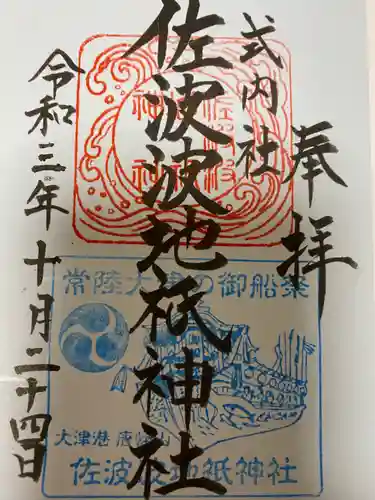 奉拝
式内社
佐波波地祇神社
令和三年十月二十四日
常陸大津の御船祭
大津港 唐帰山
佐波波地祇神社